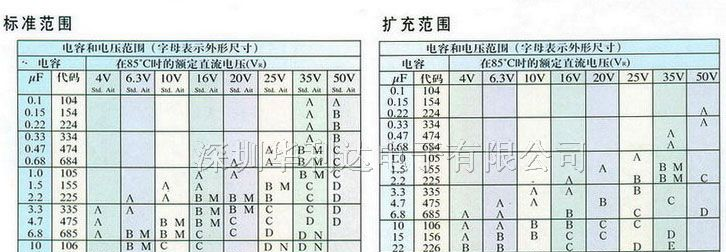 标准范围
电容和电压范围(字母表示外形尺寸)
电容 在85°C时的额定直流电压(VR)
μF 代码 4V 6.3V 10V 16V 20V 25V 35V 50V
Std. Ait Std. Ait Std. Ait Std. Ait Std. Ait Std. Ait Std. Ait Std. Ait
0.1 104 A A
0.15 154 A B
0.22 224 A B
0.33 334 A
0.47 474 A B M C
0.68 684 A A B M C
1.0 105
1.5 155 A A B M C D
2.2 225 A A B M B M B M C D
3.3 335 A A B M B M C C D
4.7 475 A B M B M C C D
6.8 685 A B M B M C C D D N
10 106 B M C C D N D N
扩充范围
电容和电压范围(字母表示外形尺寸)
电容 在85°C时的额定直流电压(VR)
μF 代码 4V 6.3V 10V 16V 20V 25V 35V 50V
0.1 104
0.15 154
0.22 224 A
0.33 334 A
0.47 474 A
0.68 684 A
1.0 105 A
1.5 155 A B M
2.2 225 A B M C
3.3 335 A A B
4.7 475 A A B C
6.8 685 A A B C D
10 106 A A B B C C
15 156 A B B C C D
22 226 B B C D E